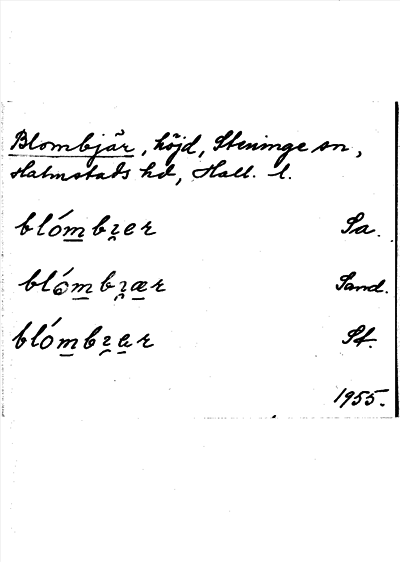 Blombjär, höjd, Steninge sn,
Halmstads hd, Hall. l.
blómbɪ̯er Sa.
blómbɪ̯ær Sand.
blómbɪ̯ar St.
1955.